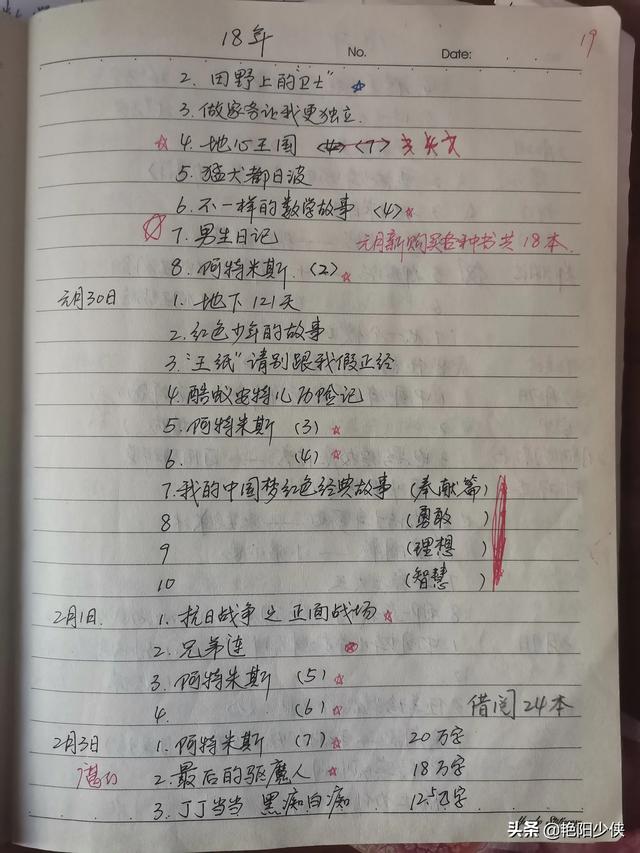 18年 No. Date: 19
2. 田野上的"卫士"
3. 做家务让我更独立.
4. 地心王国 <4> <7>
5. 猛犬都日波
6. 不一样的数学故事 <4>
7. 男生日记 元月新购买各种书共18本.
8. 阿特米斯 (2)
元月30日 1. 地下121天
2. 红色少年的故事
3. "王纸"请别跟我假正经
4. 酷蚁安特儿历险记
5. 阿特米斯 (3)
6. (4)
7. 我的中国梦红色经典故事 (奉献篇)
8 (勇敢 )
9 (理想 )
10 (智慧 )
2月1日. 1. 抗日战争之正面战场
2. 兄弟连
3. 阿特米斯 (5)
4. (6) 借阅24本
2月3日 1. 阿特米斯 (7) 20万字
2. 最后的驱魔人 18万字
3. 丁丁当当 黑痴白痴 12.5万字
头条 @艳阳少侠